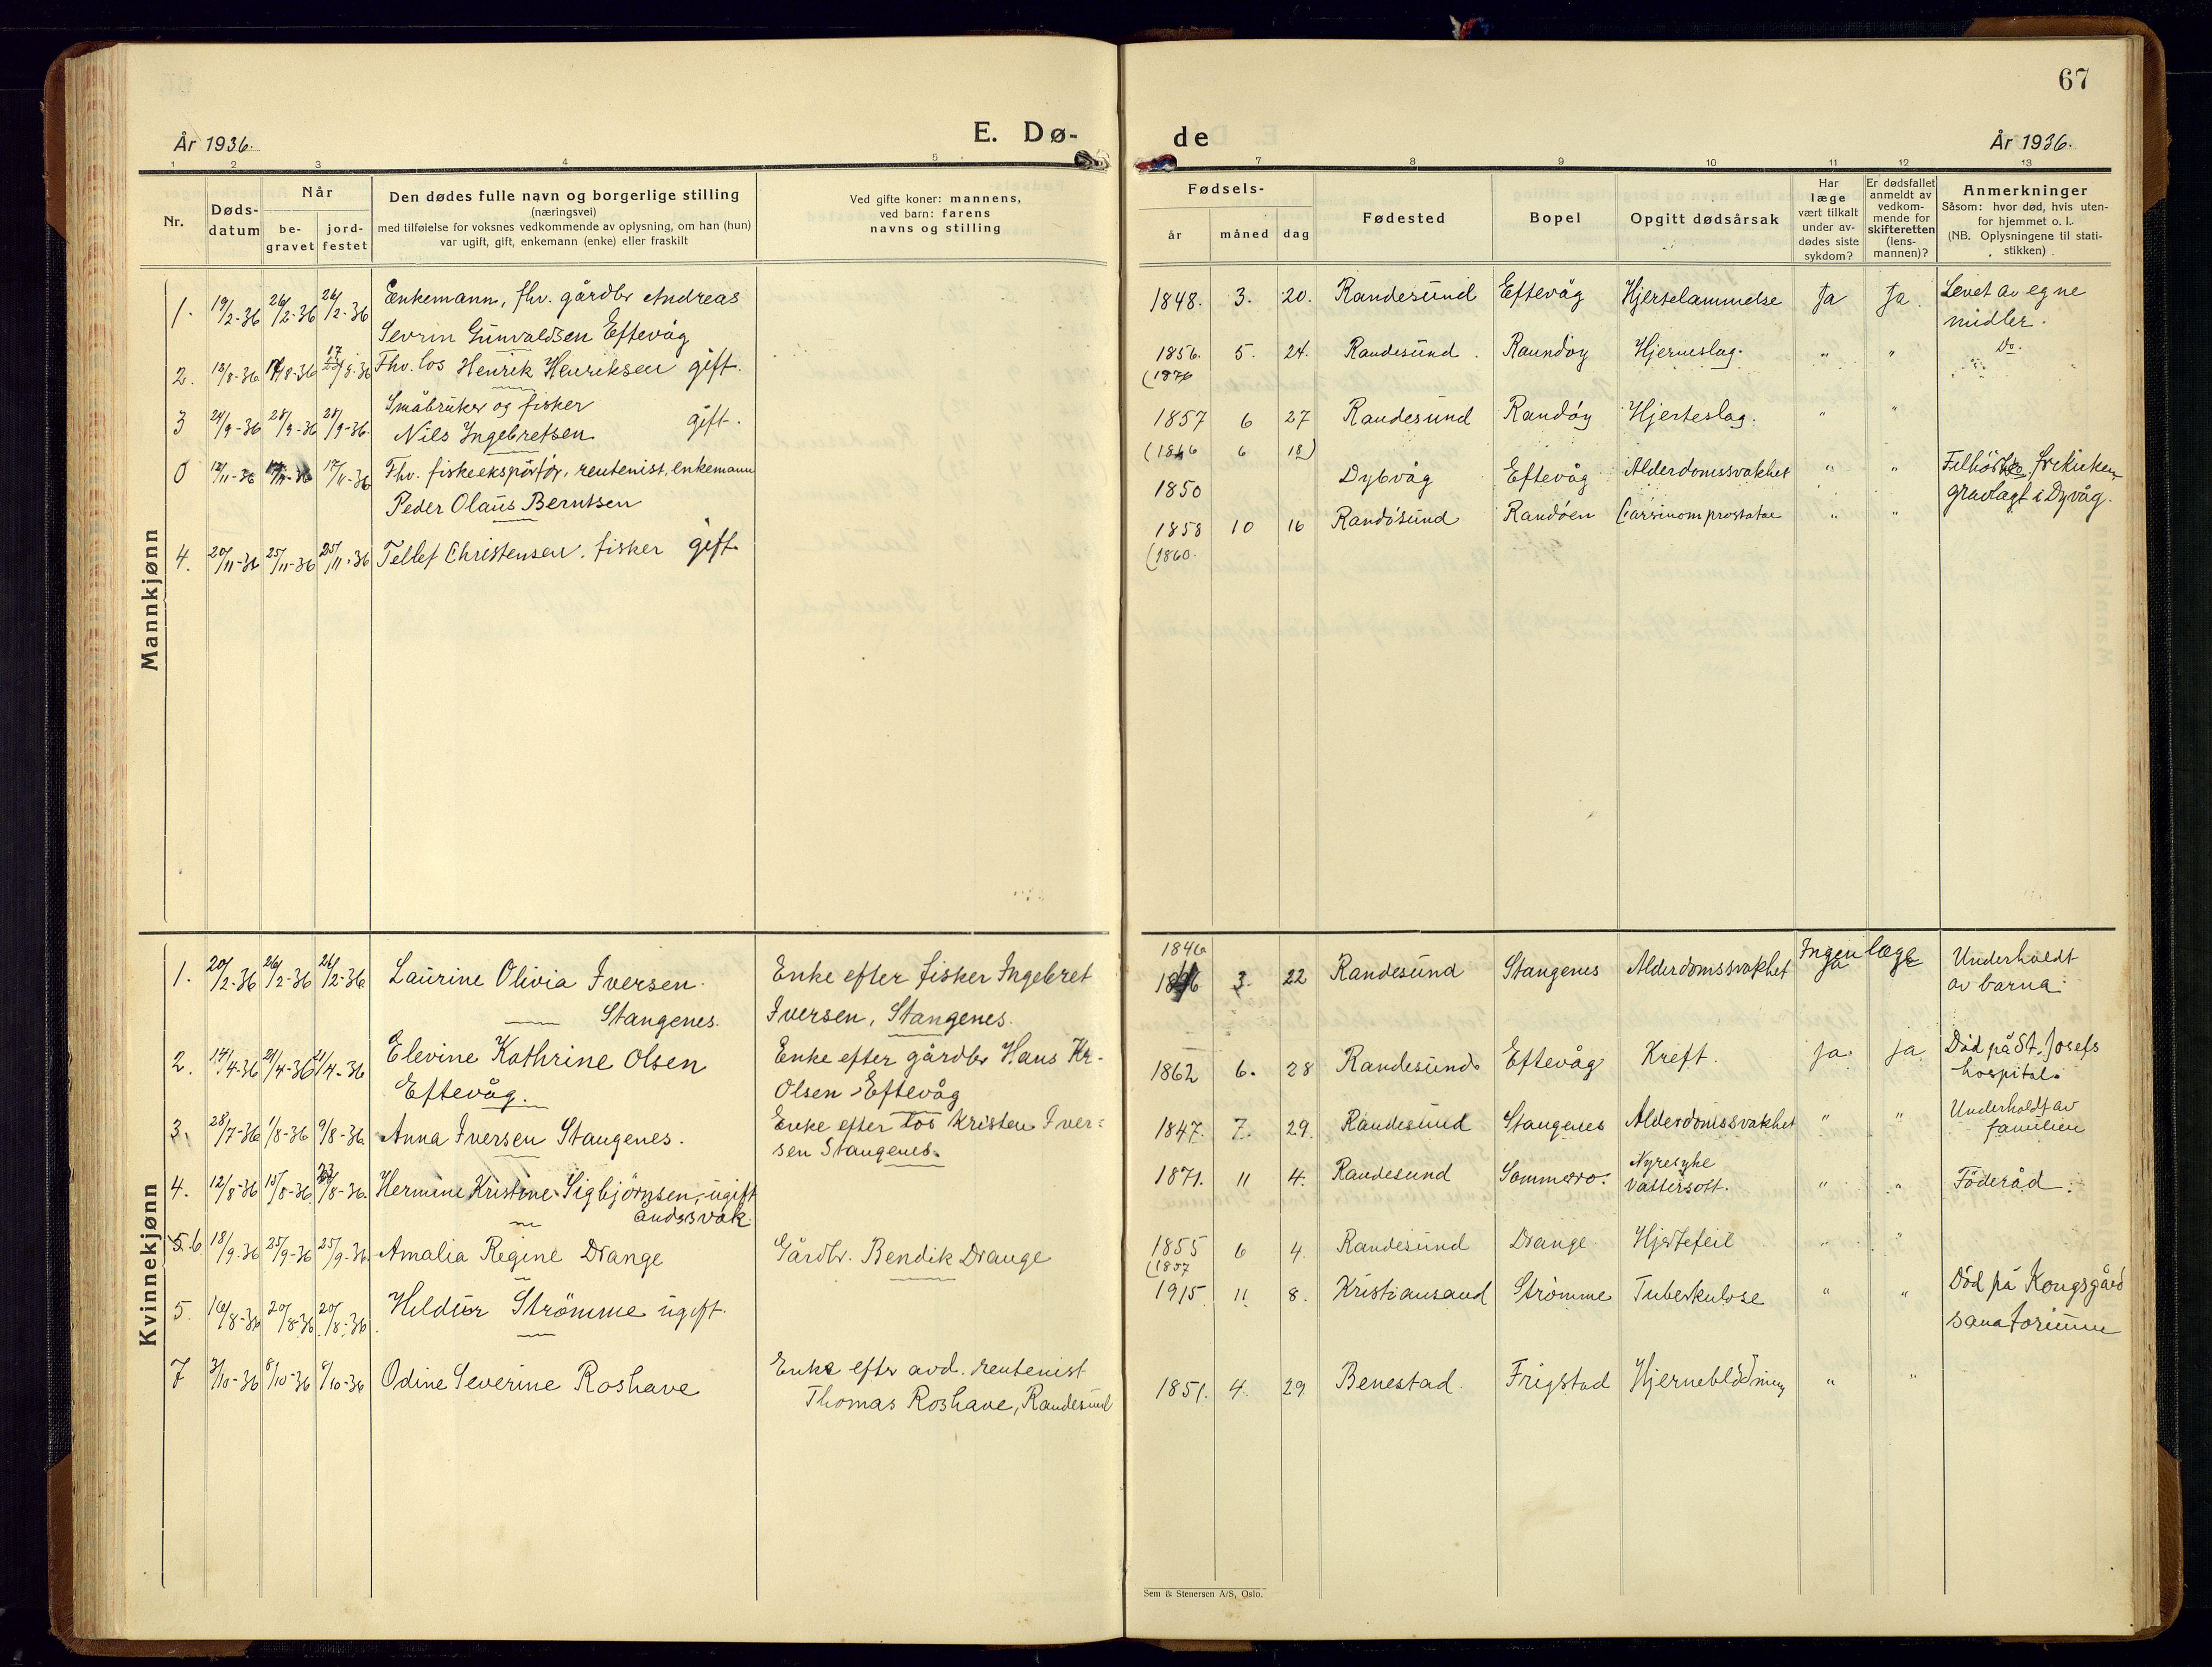 67
År 1936.
E. Dø-
de
År 1936.
1 2 3 4 5 7 8 9 10 11 12 13
Nr.
Døds-
datum
Når
be-
gravet
jord-
festet
Den dødes fulle navn og borgerlige stilling
(næringsvei)
med tilføielse for voksnes vedkommende av oplysning, om han (hun)
var ugift, gift, enkemann (enke) eller fraskilt
Ved gifte koner: mannens,
ved barn: farens
navns og stilling
Fødsels-
år måned dag
Fødested
Bopel
Opgitt dødsårsak
Har
læge
vært tilkalt
under av-
dødes siste
sykdom?
Er dødsfallet
anmeldt av
vedkom-
mende for
skifteretten
(lens-
mannen)?
Anmerkninger
Såsom: hvor død, hvis uten-
for hjemmet o. l.
(NB. Oplysningene til stati-
stikken)
Mannkjønn
1. 19/2-36 26/2-36 26/2-36 Enkemann, fhv. gårdbr Andreas
Sevrin Gunvaldsen Eftevåg
1848. 3. 20. Randesund Eftevåg Hjertelammelse Ja Ja. Levet av egne
midler.
2. 13/8-36 17/8-36 17/8-36 Fhv. los Henrik Henriksen gift.
1856. 5. 24. Randesund. Randøy Hjerneslag. " " Do.
(1876
3 24/9-36 28/9-36 28/9-36. Småbruker og fisker
Nils Ingebretsen. gift.
1857 6 27 Randesund Randøy Hjerteslag. " "
(1866 6 18)
0 12/11-36 17/11-36 17/11-36 Fhv. fiskeeksportør, rentenist, enkemann
Peder Olaus Berntsen
1850 Dybvåg Eftevåg Alderdomssvakhet " " Tilhörte frikirken
gravlagt i Dyvåg.
4. 20/11-36 25/11-36 25/11-36 Tellef Christensen. fisker gift.
1858 10 16 Randösund Randöen Carsinom prostatae " "
(1860.
Kvinnekjønn
1. 20/2-36 26/2-36 26/2-36 Laurine Olivia Iversen.
Stangenes.
Enke efter fisker Ingebret
Iversen, Stangenes.
1846
1846 3. 22 Randesund Stangenes Alderdomssvakhet Ingen læge Ja Underholdt
av barna.
2. 14/4-36 21/4-36 21/4-36 Elevine Kathrine Olsen
Eftevåg.
Enke efter gårdbr Hans Kr.
Olsen Eftevåg
1862 6. 28 Randesund Eftevåg Kreft. Ja. Ja Död på St. Josefs
hospital.
3. 28/7-36 1/8-36 9/8-36 Anna Iversen Stangenes.
Enke efter los Kristen Iver=
sen Stangenes.
1847. 7. 29. Randesund Stangenes Alderdomssvakhet " " Underholdt av
familien
4. 12/8-36 15/8-36 23/8-36. Hermine Kristine Sigbjörnsen, ugift
åndssvak
1871. 11 4. Randesund Sommerro. Nyresyke
Vattersott. " " Föderåd.
5.6 18/9.36 25/9-36 25/9-36. Amalia Regine Drange
Gårdbr. Bendik Drange
1855 6 4. Randesund Drange Hjertefeil " "
(1857
5. 16/8-36 20/8-36 20/8-36 Hildur Strömme ugift.
1915. 11 8. Kristiansand Strömme Tuberkulose " " Död på Kongsgård
sanatorium
7 3/10-36 8/10-36 8/10-36 Odine Severine Roshave
Enke efter avd. rentenist
Thomas Roshave, Randesund
1851. 4. 29 Benestad. Frigstad Hjerneblödning " "
Sem & Stenersen A/S, Oslo.